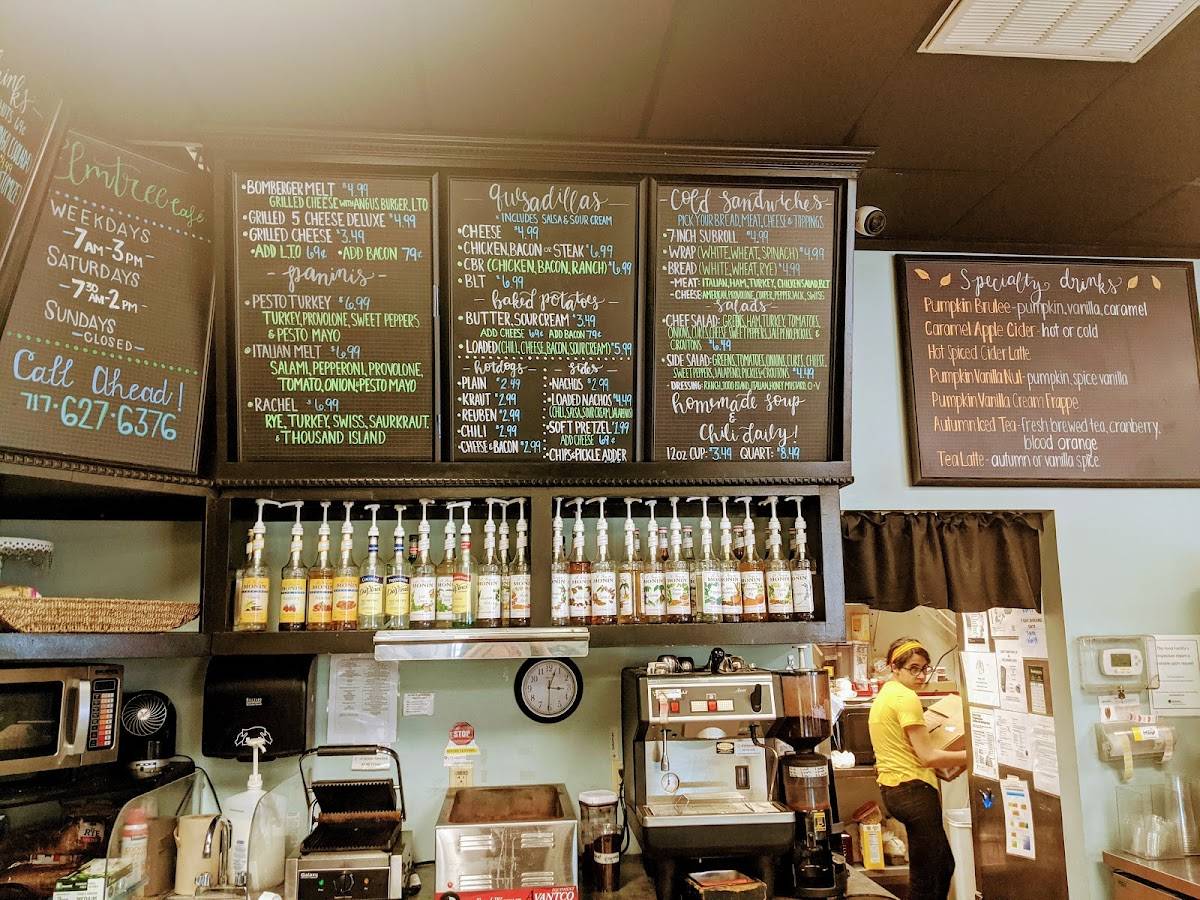 Elmtree Cafe
WEEKDAYS
-7AM-3PM-
SATURDAYS
-7:30AM-2PM-
SUNDAYS
-CLOSED-
Call Ahead!
717·627·6376
•BOMBERGER MELT $4.99
GRILLED CHEESE WITH ANGUS BURGER, LTO
•GRILLED 5 CHEESE DELUXE $4.99
•GRILLED CHEESE $3.49
•ADD L.T.O 69¢ •ADD BACON 79¢
-paninis-
•PESTO TURKEY $6.99
TURKEY, PROVOLONE, SWEET PEPPERS
& PESTO MAYO
•ITALIAN MELT $6.99
SALAMI, PEPPERONI, PROVOLONE,
TOMATO, ONION & PESTO MAYO
•RACHEL $6.99
RYE, TURKEY, SWISS, SAURKRAUT,
& THOUSAND ISLAND
-quesadillas-
•INCLUDES SALSA & SOUR CREAM
•CHEESE $4.99
•CHICKEN, BACON OR STEAK $6.99
•CBR (CHICKEN, BACON, RANCH) $6.99
•BLT $6.99
-baked potatoes-
•BUTTER, SOUR CREAM $3.49
ADD CHEESE 69¢ ADD BACON 79¢
•LOADED (CHILI, CHEESE, BACON, SOUR CREAM) $5.99
-hotdogs-
•PLAIN $2.49
•KRAUT $2.99
•REUBEN $2.99
•CHILI $2.99
•CHEESE & BACON $2.99
-sides-
•NACHOS $2.99
•LOADED NACHOS $4.49
(CHILI, SALSA, SOUR CREAM, JALAPENOS)
•SOFT PRETZEL $1.99
ADD CHEESE 69¢
•CHIPS & PICKLE ADDER
-Cold Sandwiches-
PICK YOUR BREAD, MEAT, CHEESE & TOPPINGS
•7 INCH SUB ROLL $4.99
•WRAP (WHITE, WHEAT, SPINACH) $4.99
•BREAD (WHITE, WHEAT, RYE) $4.99
-MEAT: ITALIAN, HAM, TURKEY, CHICKEN SALAD, BLT
-CHEESE: AMERICAN, PROVOLONE, COOPER, PEPPERJACK, SWISS
-Salads-
•CHEF SALAD: GREENS, HAM, TURKEY, TOMATOES,
ONIONS, CUKES, CHEESE, SWEET PEPPERS, JALAPENO, PICKLES &
CROUTONS $6.49
•SIDE SALAD: GREENS, TOMATOES, ONIONS, CUKES, CHEESE,
SWEET PEPPERS, JALAPENO, PICKLES & CROUTONS $4.49
•DRESSING: RANCH, 1000 ISLAND, ITALIAN, HONEY MUSTARD, O+V
homemade soup
&
Chili daily!
12oz CUP: $3.49 QUART: $8.49
Specialty drinks
Pumpkin Brulee-pumpkin, vanilla, caramel
Caramel Apple Cider- hot or cold
Hot Spiced Cider Latte
Pumpkin Vanilla Nut- pumpkin, spice vanilla
Pumpkin Vanilla Cream Frappe
Autumn Iced Tea- Fresh brewed tea, cranberry,
blood orange
Tea Latte- autumn or vanilla spice
MONIN
STOP
Galaxy
VANTCO